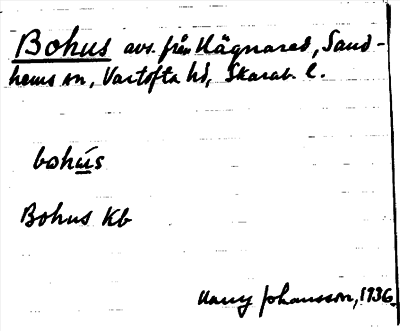 Bohus avs. från Hägnared, Sand-
hems sn, Vartofta hd, Skarab. l.
bohùs
Bohus Kb
Harry Johansson, 1936.